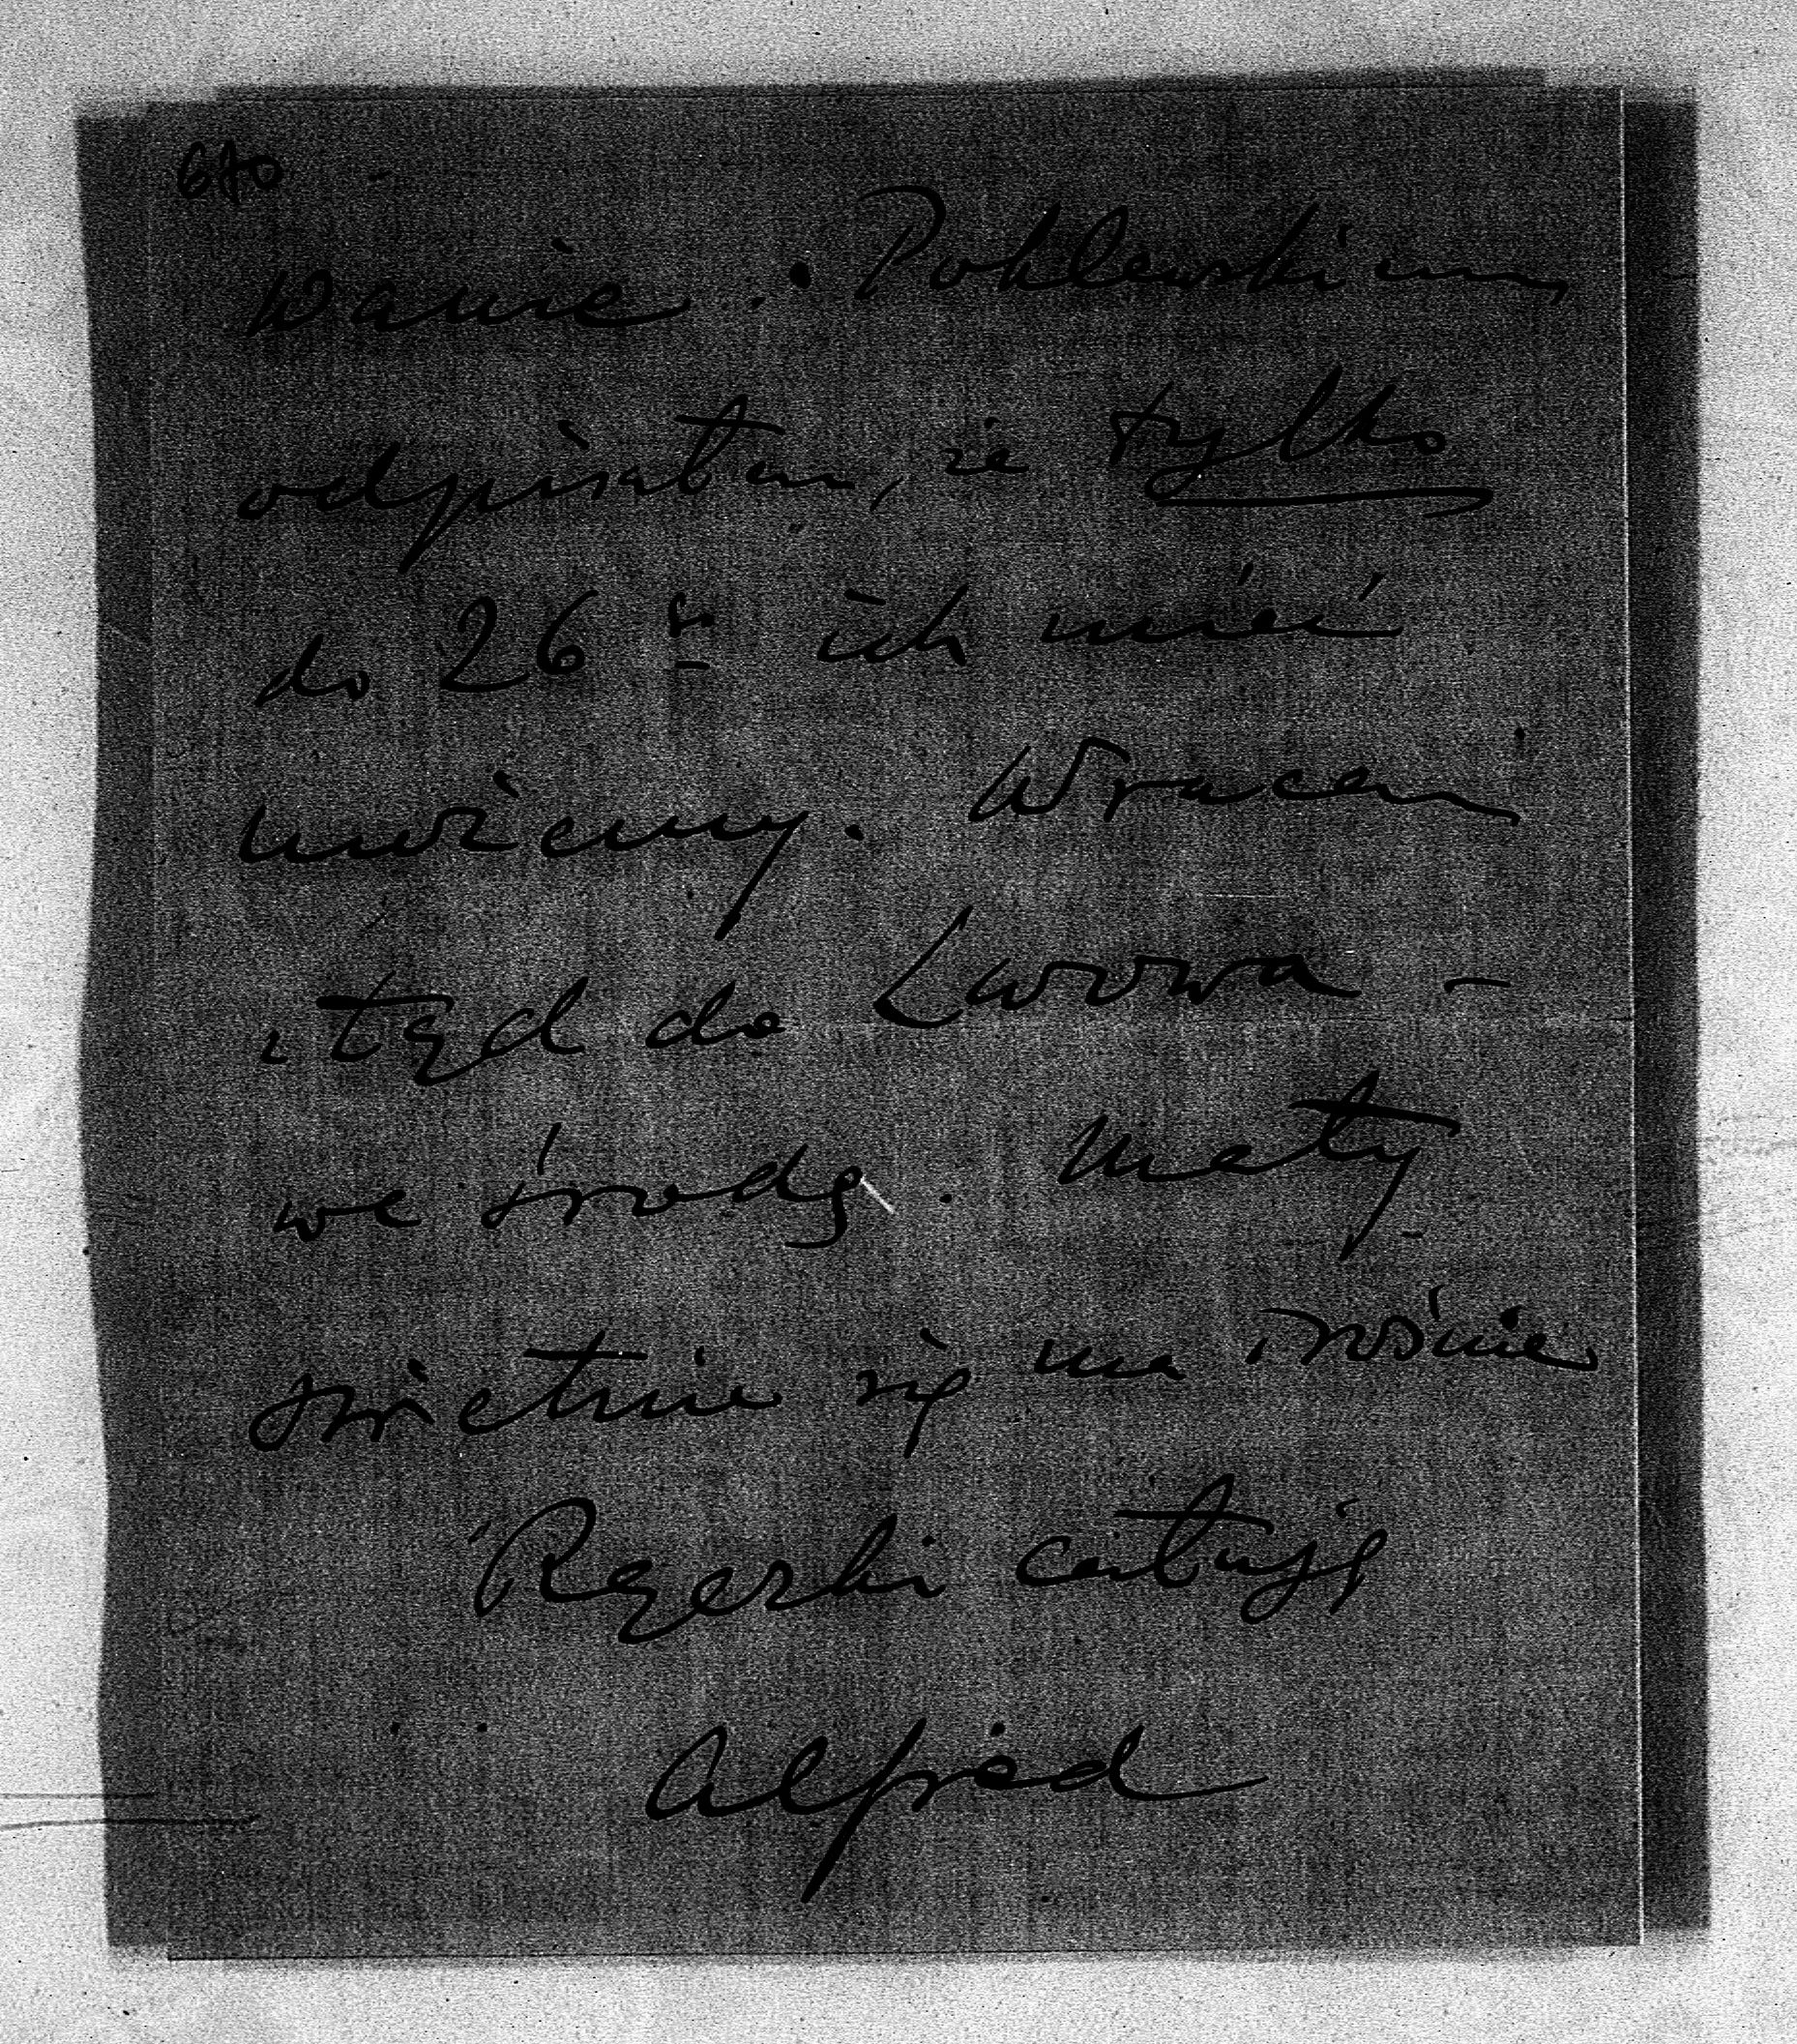 670
wanie. Poklewskiemu
odpisałem, że tylko
do 26 go ich mieć
możemy. Wracam
stąd do Lwowa –
we środę. Mały
świetnie się ma i rośnie
Rączki całuję
Alfred